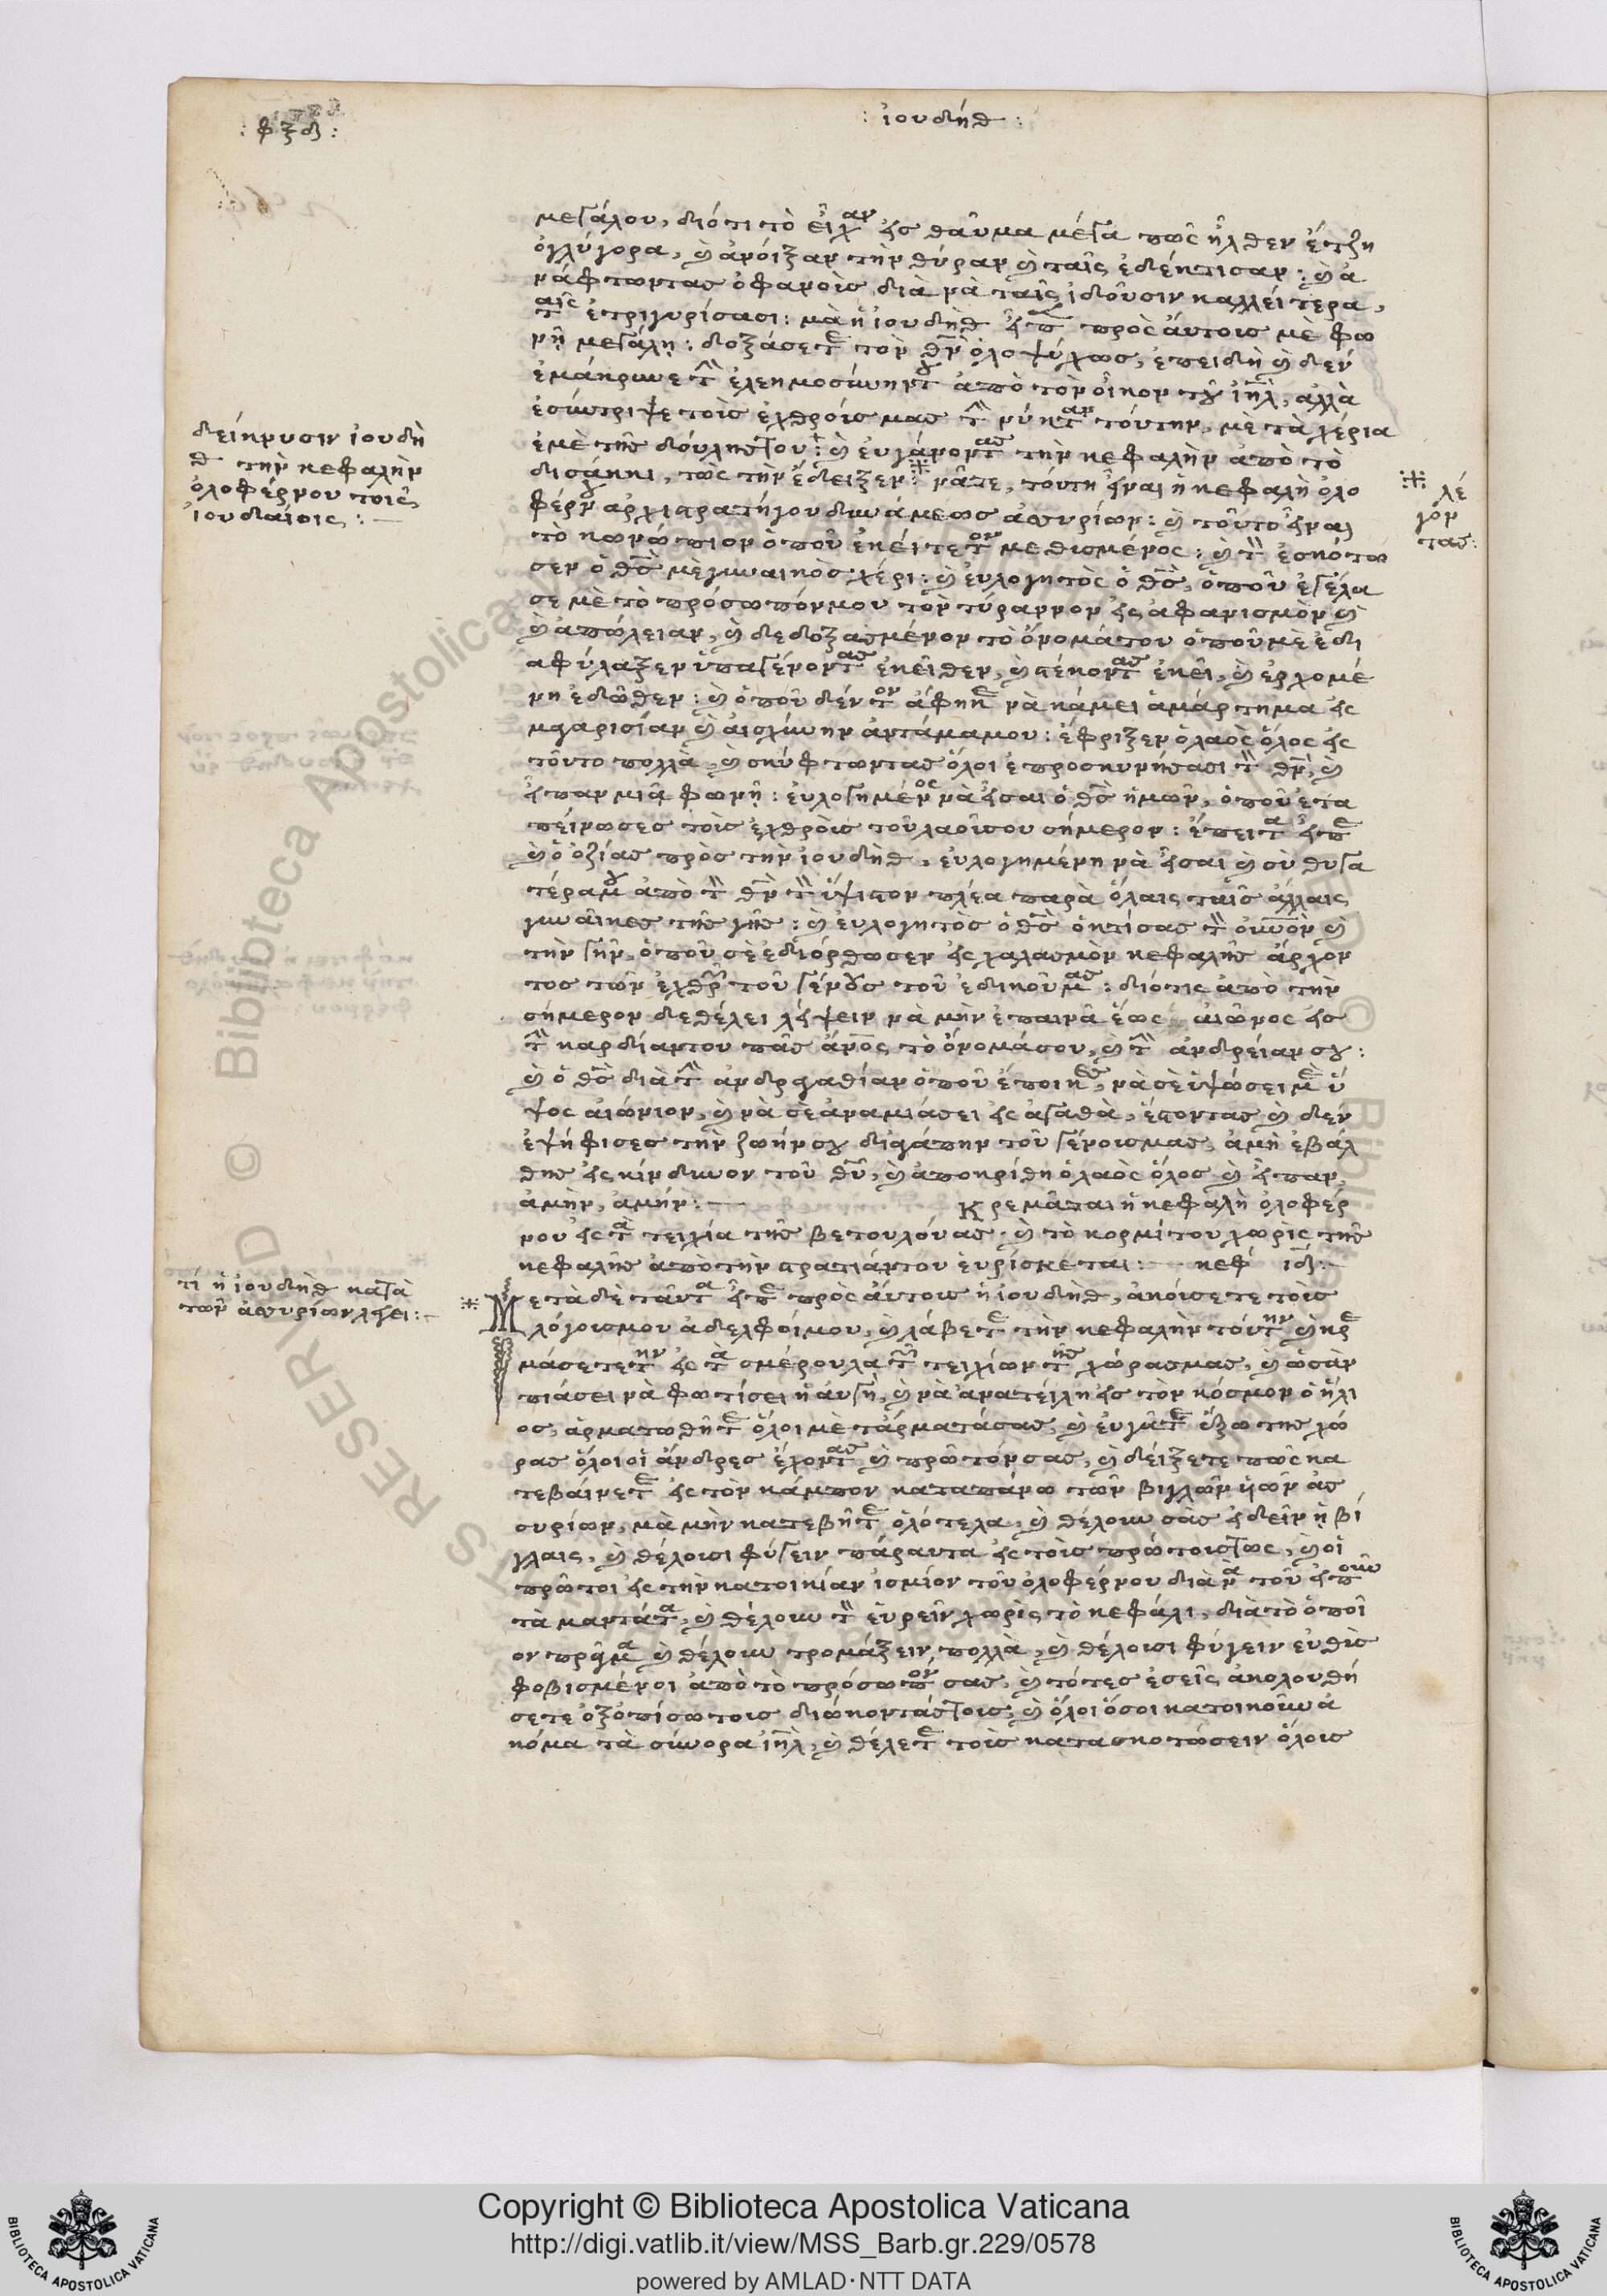 : φξδ :
: ἰουδήθ :
μεγάλου, διότι τὸ εἶχαν εἰς θαῦμα μέγα πῶς ἦλθεν ἔτζη
ὀγλύγορα, καὶ ἀνοίξαν τὴν θύραν καὶ ταῖς ἐδέητισαν : καὶ ἀ
νάφτωντας ὁφανοὶς διὰ νὰ ταῖς ἰδοῦσιν καλλείτερα,
ταῖς ἐτριγυρίσασι : μὰ ἡ ἰουδὴθ εἶπε πρὸς ἄυτοις μὲ φω
νῇ μεγάλῃ : δοξάσετε τὸν θν̅ ὁλοψύχως, ἐπειδὴ καὶ δεν
ἐμάκρυνε τὴν ἐλεημοσύνην του ἀπὸ τὸν οἶκον τοῦ ἰηλ̅, αλλὰ
ἐσύντριψε τοὶς ἐχθροὶς μας τὴν νύκταν τόυτην, μὲ τὰ χέρια
ἐμὲ τῆς δούλης του : καὶ ἐυγάνοντας τὴν κεφαλὴν ἀπὸ τὸ
δισάκκι, τῶς τὴν ἔδειξεν : ※ νᾶτε, τόυτη εἶναι ἡ κεφαλὴ ὀλο
φέρνου ἀρχιστρατήγου δυνάμεως ἀσσυρίων : καὶ τοῦτο εἶναι
τὸ κωνώπιον ὁποῦ ἐκείτετον μεθισμένος : καὶ τὸν ἐσκότω
σεν ὁ θς̅ μὲ γυναικὸς χέρι : καὶ ἐυλογητὸς ὁ θς̅, ὁποῦ ἐγέλα
σε μὲ τὸ πρόσωπόν μου τὸν τύραννον εἰς ἀφανισμὸν καὶ
καὶ ἀπώλειαν, καὶ δεδοξασμένον τὸ ὄνομά του ὁποῦ με ἐδι
αφύλαξεν ὑπαγένοντας ἐκεῖθεν, καὶ στέκοντας ἐκεῖ, καὶ ἐρχομέ
νη ἐδῶθεν : καὶ ὁποῦ δέν τον ἄφηκε νὰ κάμει ἁμάρτημα εἰς
μγαρισίαν καὶ ἀισχύνην ἀντάμα μου : ἔφριξεν ὁ λαὸς ὅλος εἰς
τόυτο πολλὰ, καὶ σκύφτωντας ὅλοι ἐπροσκυνήσασι τὸν θν̅, καὶ
εἶπαν μιᾷ φωνῇ : ἐυλογημένος νὰ εἶσαι ὁ θς̅ ἡμῶν, ὁποῦ ἐτα
πείνωσες τοὶς ἐχθροὶς τοῦ λαοῦ σου σήμερον : ἔπειτα εἶπε
καὶ ὁ ὀζίας πρὸς τὴν ἰουδὴθ, ἐυλογημένη νὰ εἶσαι καὶ σὺ θυγα
τέρα μου ἀπὸ τὸν θν̅ τὸν ὕψιστον πλέα παρὰ ὅλαις ταὶς ἄλλαις
γυναῖκες τῆς γῆς : καὶ ἐυλογητὸς ὁ θς̅ ὁ κτίσας τὸν οὐνον̅ καὶ
τὴν γῆν, ὁποῦ σὲ ἐδιόρθωσεν εἰς χαλασμὸν κεφαλῆς ἄρχον
τος τῶν ἐχθρῶν τοῦ γένους τοῦ ἐδικοῦ μας : διότις ἀπὸ τὴν
σήμερον δὲ θέλει λείψειν νὰ μὴν ἐπαινᾷ ἕως ἀιῶνος εἰς
τὴν καρδίαν του πᾶς ἄνος̅ τὸ ὄνομά σου, καὶ τὴν ἀνδρείαν σου :
καὶ ὁ θς̅ διὰ τὴν ἀνδραγαθίαν ὁποῦ ἔποικες, νὰ σὲ ὑψώσει μὲ ὕ
ψος αἰώνιον, καὶ νὰ σὲ ἀναμιάσει εἰς ἀγαθὰ, ἔστοντας καὶ δεν
ἐψήφισες τὴν ζωήν σου δι ἀγάπην τοῦ γένοις μας, ἀμὴ ἐβάλ
θης εἰς κίνδυνον τοῦ θῦ, καὶ ἀποκρίθη ὁ λαὸς ὅλος καὶ εἶπαν,
ἀμὴν, ἀμήν : — Κρεμᾶται ἡ κεφαλὴ ὀλοφέρ
νου εἰς τὰ τειχία τῆς βετουλούας, καὶ τὸ κορμί του χωρὶς τῆς
κεφαλῆς ἀπὸ τὴν στρατιάν του ἑυρίσκεται : — κεφ ιδ : —
※ Μετὰ δὲ ταῦτα εἶπε πρὸς ἄυτοις ἡ ἰουδὴθ, ἀκούσετε τοὶς
λόγοις μου ἀδελφοί μου, καὶ λάβετε τὴν κεφαλὴν τόυτην καὶ κρε
μάσετέ την εἰς τὰ σμέρουλα τῶν τειχίων τῆς χώρας μας, καὶ ὡσὰν
πιάσει νὰ φωτίσει ἡ ἀυγὴ, καὶ νὰ ἀνατείλη εἰς τὸν κόσμον ὁ ἥλι
ος, ἁρματωθῆτε ὅλοι μὲ τάρματά σας, καὶ ἐυγᾶτε ἔξω της χώ
ρας ὅλοι οἱ ἄνδρες ἔχοντας καὶ πρῶτόν σας, καὶ δείξετε πῶς κα
τεβάινετε εἰς τὸν κάμπον καταπάνω τῶν βιγλῶν ὑιῶν ἀσ
συρίων, μὰ μὴν κατεβῆτε ὁλότελα, καὶ θέλουν σᾶς εἰδεῖν ᾑ βί
γλαις, καὶ θέλουσι φύγειν πάραυτα εἰς τοὶς πρώτοις τως, καὶ οἱ
πρῶτοι εἰς τὴν κατοικίαν ἰσμίον τοῦ ὀλοφέρνου διὰ νὰ τοῦ εἰποῦν
τὰ μαντάτα, καὶ θέλουν τὸν ἑυρεῖν χωρὶς τὸ κεφάλι, διὰ τὸ ὁποῖ
ον πρᾶγμα καὶ θέλουν τρομάξειν πολλὰ, καὶ θέλουσι φύγειν ἐυθὶς
φοβισμένοι ἀπὸ τὸ πρόσωπόν σας, καὶ τότες ἐσεῖς ἀκολουθή
σετε ὀξοπίσω τοις διώκοντάς τοις, καὶ ὅλοι ὅσοι κατοικοῦν ἀ
κόμα τὰ σύνορα ἰηλ̅, καὶ θέλετε τοὶς κατασκοτώσειν ὅλοις
δείκνυσιν ἰουδὴ
θ τὴν κεφαλὴν
ὀλοφέρνου τοιῖς
ἰουδαίοις : —
※ λέ
γον
τας :
τί ἡ ἰουδὴθ κατὰ
τῶν ἀσσυρίων λέγει : —
Copyright © Biblioteca Apostolica Vaticana
http://digi.vatlib.it/view/MSS_Barb.gr.229/0578
powered by AMLAD·NTT DATA